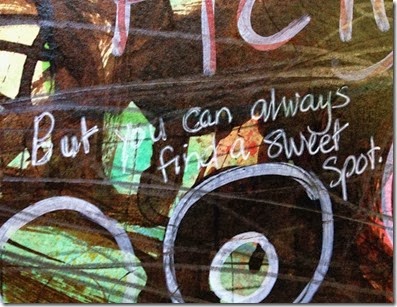 But you can always
find a sweet
spot.